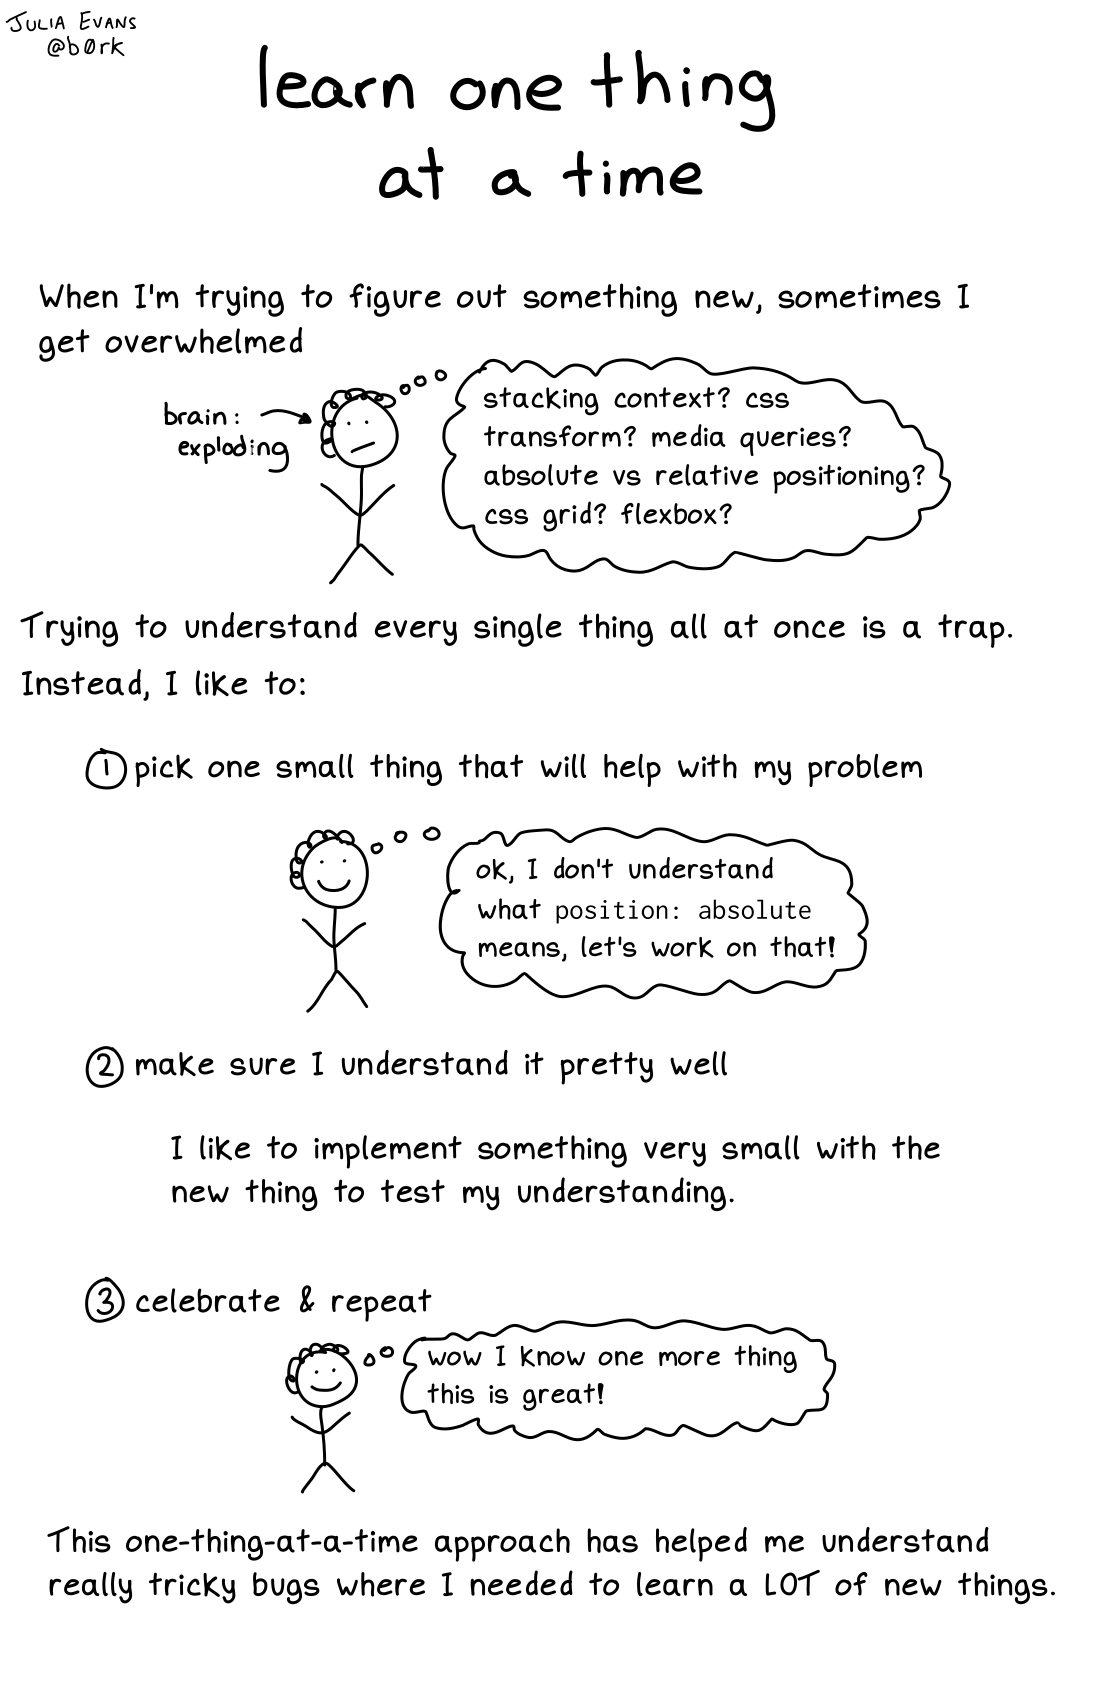 JULIA EVANS
@b0rk
learn one thing
at a time
When I'm trying to figure out something new, sometimes I
get overwhelmed
brain:
exploding
stacking context? css
transform? media queries?
absolute vs relative positioning?
css grid? flexbox?
Trying to understand every single thing all at once is a trap.
Instead, I like to:
1 pick one small thing that will help with my problem
ok, I don't understand
what position: absolute
means, let's work on that!
2 make sure I understand it pretty well
I like to implement something very small with the
new thing to test my understanding.
3 celebrate & repeat
wow I know one more thing
this is great!
This one-thing-at-a-time approach has helped me understand
really tricky bugs where I needed to learn a LOT of new things.